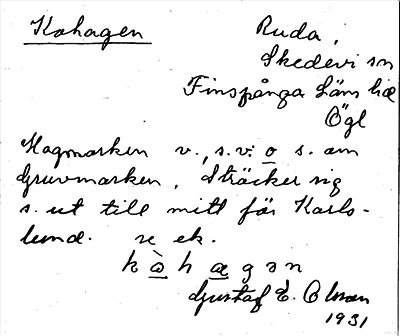 Kohagen
Ruda,
Skedevi sn
Finspånga läns hd
Ögl
Hagmarken v., s.v. o s. om
Gruvmarken. Sträcker sig
s. ut till mitt för Karls-
lund. se ek.
k ò h a g ə n
Gustaf E. Olsson
1931